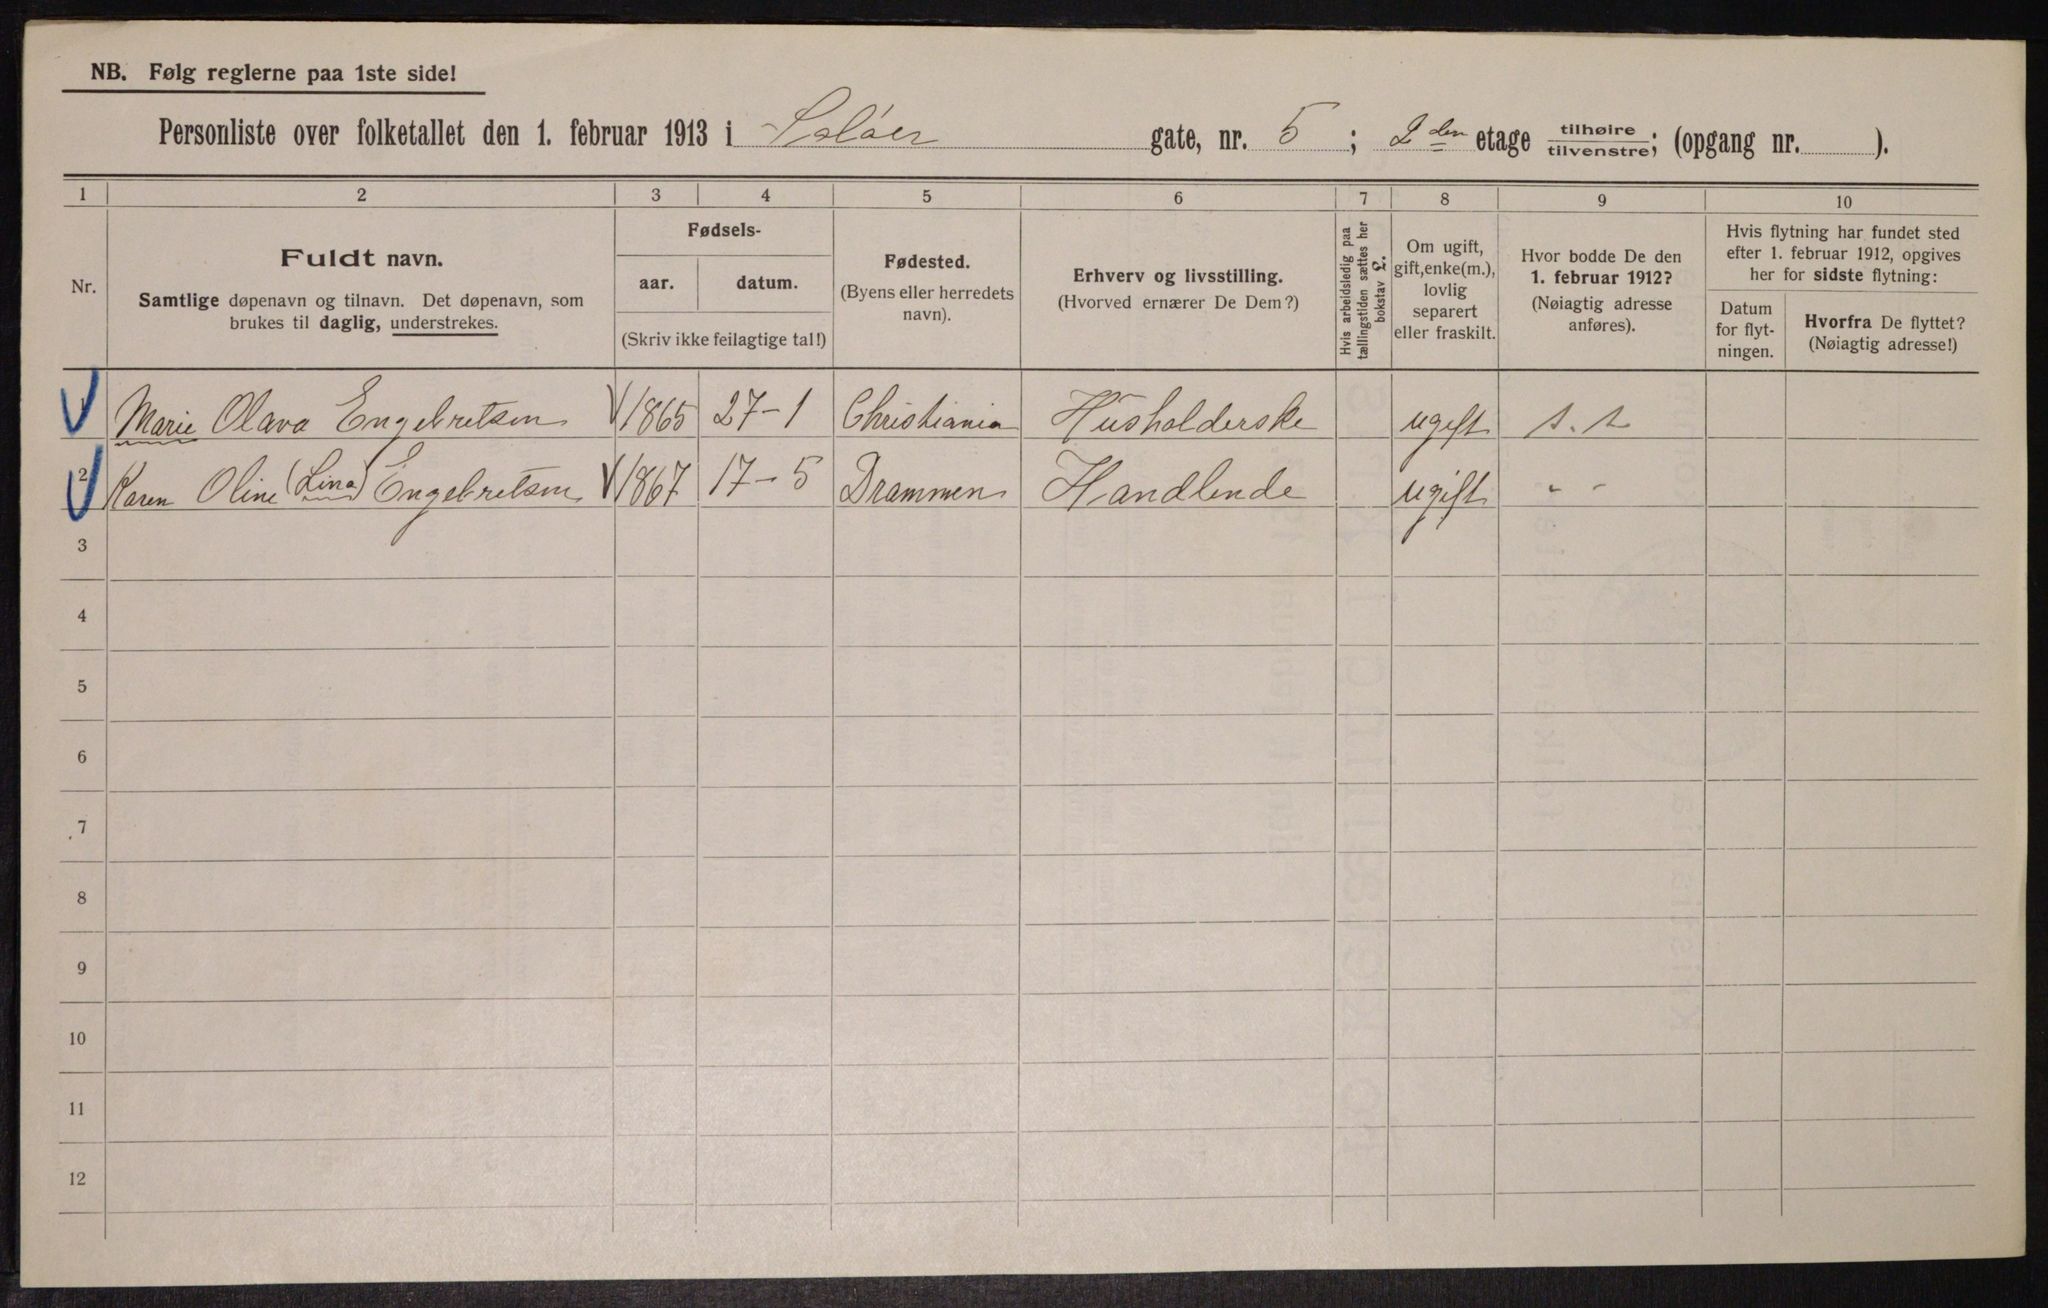 NB. Følg reglerne paa 1ste side!
Personliste over folketallet den 1. februar 1913 i Soløer gate, nr. 5 ; 2den etage tilhøire tilvenstre; (opgang nr. ).
1 2 3 4 5 6 7 8 9 10
Nr.
Fuldt navn.
Samtlige døpenavn og tilnavn. Det døpenavn, som
brukes til daglig, understrekes.
Fødsels-
aar. datum.
(Skriv ikke feilagtige tal!)
Fødested.
(Byens eller herredets
navn).
Erhverv og livsstilling.
(Hvorved ernærer De Dem?)
Hvis arbeidsledig paa
tællingstiden sættes her
bokstav L.
Om ugift,
gift, enke(m.),
lovlig
separert
eller fraskilt.
Hvor bodde De den
1. februar 1912?
(Nøiagtig adresse
anføres).
Hvis flytning har fundet sted
efter 1. februar 1912, opgives
her for sidste flytning:
Datum
for flyt-
ningen.
Hvorfra De flyttet?
(Nøiagtig adresse!)
1 Marie Olava Engebretsen 1865 27-1 Christiania Husholderske ugift s. s
2 Karen Oline (Lina) Engebretsen 1867 17-5 Drammen Handlende ugift - -
3
4
5
6
7
8
9
10
11
12